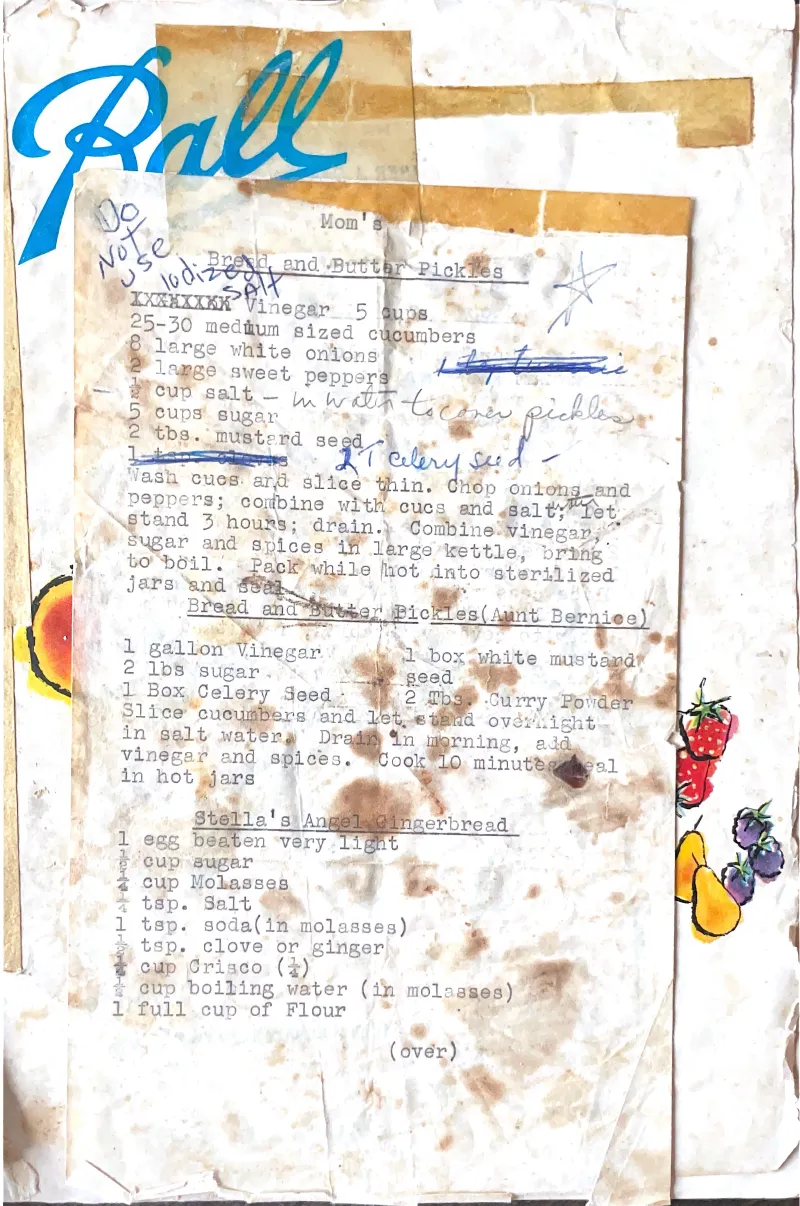 Ball
Mom's
Do
Not
use
iodized
salt
Bread and Butter Pickles
XXXXXXXX Vinegar 5 cups
25-30 medium sized cucumbers
8 large white onions
2 large sweet peppers
½ cup salt - in water to cover pickles
5 cups sugar
2 tbs. mustard seed
2 T celery seed -
Wash cucs and slice thin. Chop onions and
peppers; combine with cucs and salt; let
stand 3 hours; drain. Combine vinegar,
sugar and spices in large kettle, bring
to boil. Pack while hot into sterilized
jars and seal
Bread and Butter Pickles(Aunt Bernice)
1 gallon Vinegar
2 lbs sugar
1 Box Celery Seed
1 box white mustard
seed
2 Tbs. Curry Powder
Slice cucumbers and let stand overnight
in salt water. Drain in morning, add
vinegar and spices. Cook 10 minutes seal
in hot jars
Stella's Angel Gingerbread
1 egg beaten very light
½ cup sugar
cup Molasses
¼ tsp. Salt
1 tsp. soda(in molasses)
½ tsp. clove or ginger
cup Crisco (¼)
½ cup boiling water (in molasses)
1 full cup of Flour
(over)